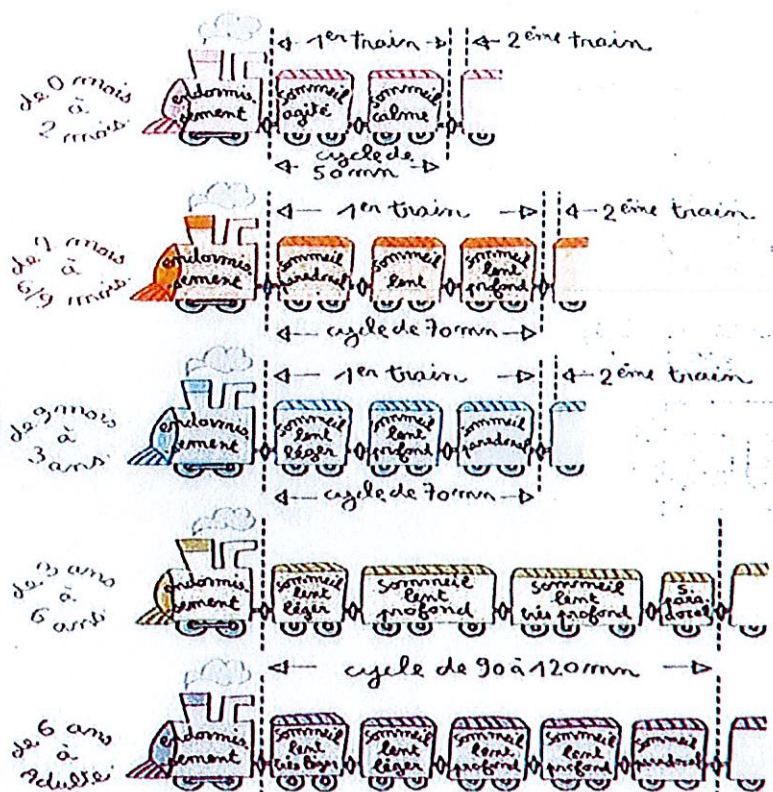 de 0 mois
à
2 mois
endormis
sement
1er train
2ème train
sommeil
agité
sommeil
calme
cycle de
50mn
de 2 mois
à
6/9 mois
endormis
sement
1er train
2ème train
sommeil
paradoxal
sommeil
lent
sommeil
lent
profond
cycle de 70mn
de 9 mois
à
3 ans
endormis
sement
1er train
2ème train
sommeil
lent
léger
sommeil
lent
profond
sommeil
paradoxal
cycle de 70mn
de 3 ans
à
6 ans
endormis
sement
sommeil
lent
léger
sommeil
lent
profond
sommeil
lent
très profond
S.
para
doxal
cycle de 90 à 120mn
de 6 ans
à
Adulte
endormis
sement
sommeil
lent
très léger
sommeil
lent
léger
sommeil
lent
profond
sommeil
lent
profond
sommeil
paradoxal